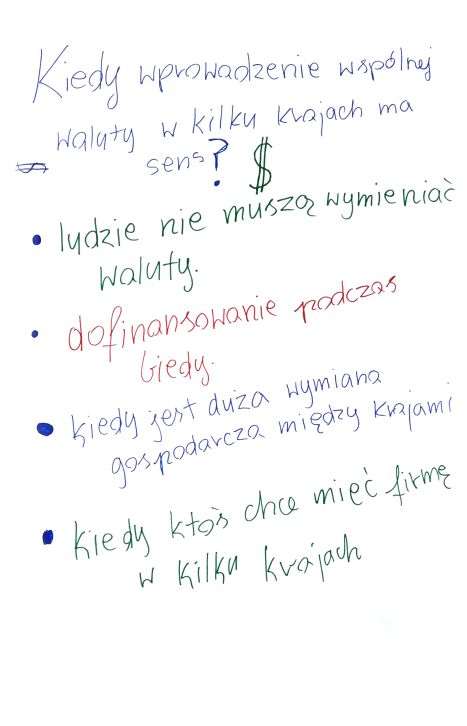 Kiedy wprowadzenie wspólnej
waluty w kilku krajach ma
sens? $
• ludzie nie muszą wymieniać
waluty.
• dofinansowanie podczas
biedy.
• kiedy jest duża wymiana
gospodarcza między krajami
• kiedy ktoś chce mięć firmę
w kilku krajach